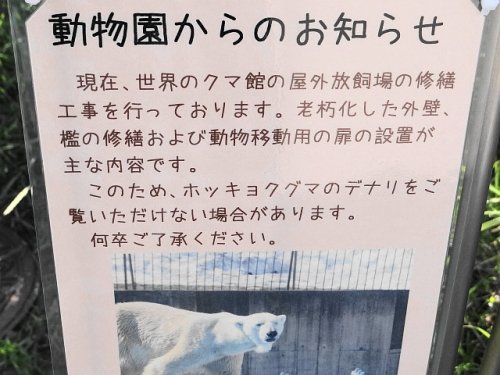 動物園からのお知らせ
現在、世界のクマ館の屋外放飼場の修繕
工事を行っております。老朽化した外壁、
檻の修繕および動物移動用の扉の設置が
主な内容です。
このため、ホッキョクグマのデナリをご
覧いただけない場合があります。
何卒ご了承ください。